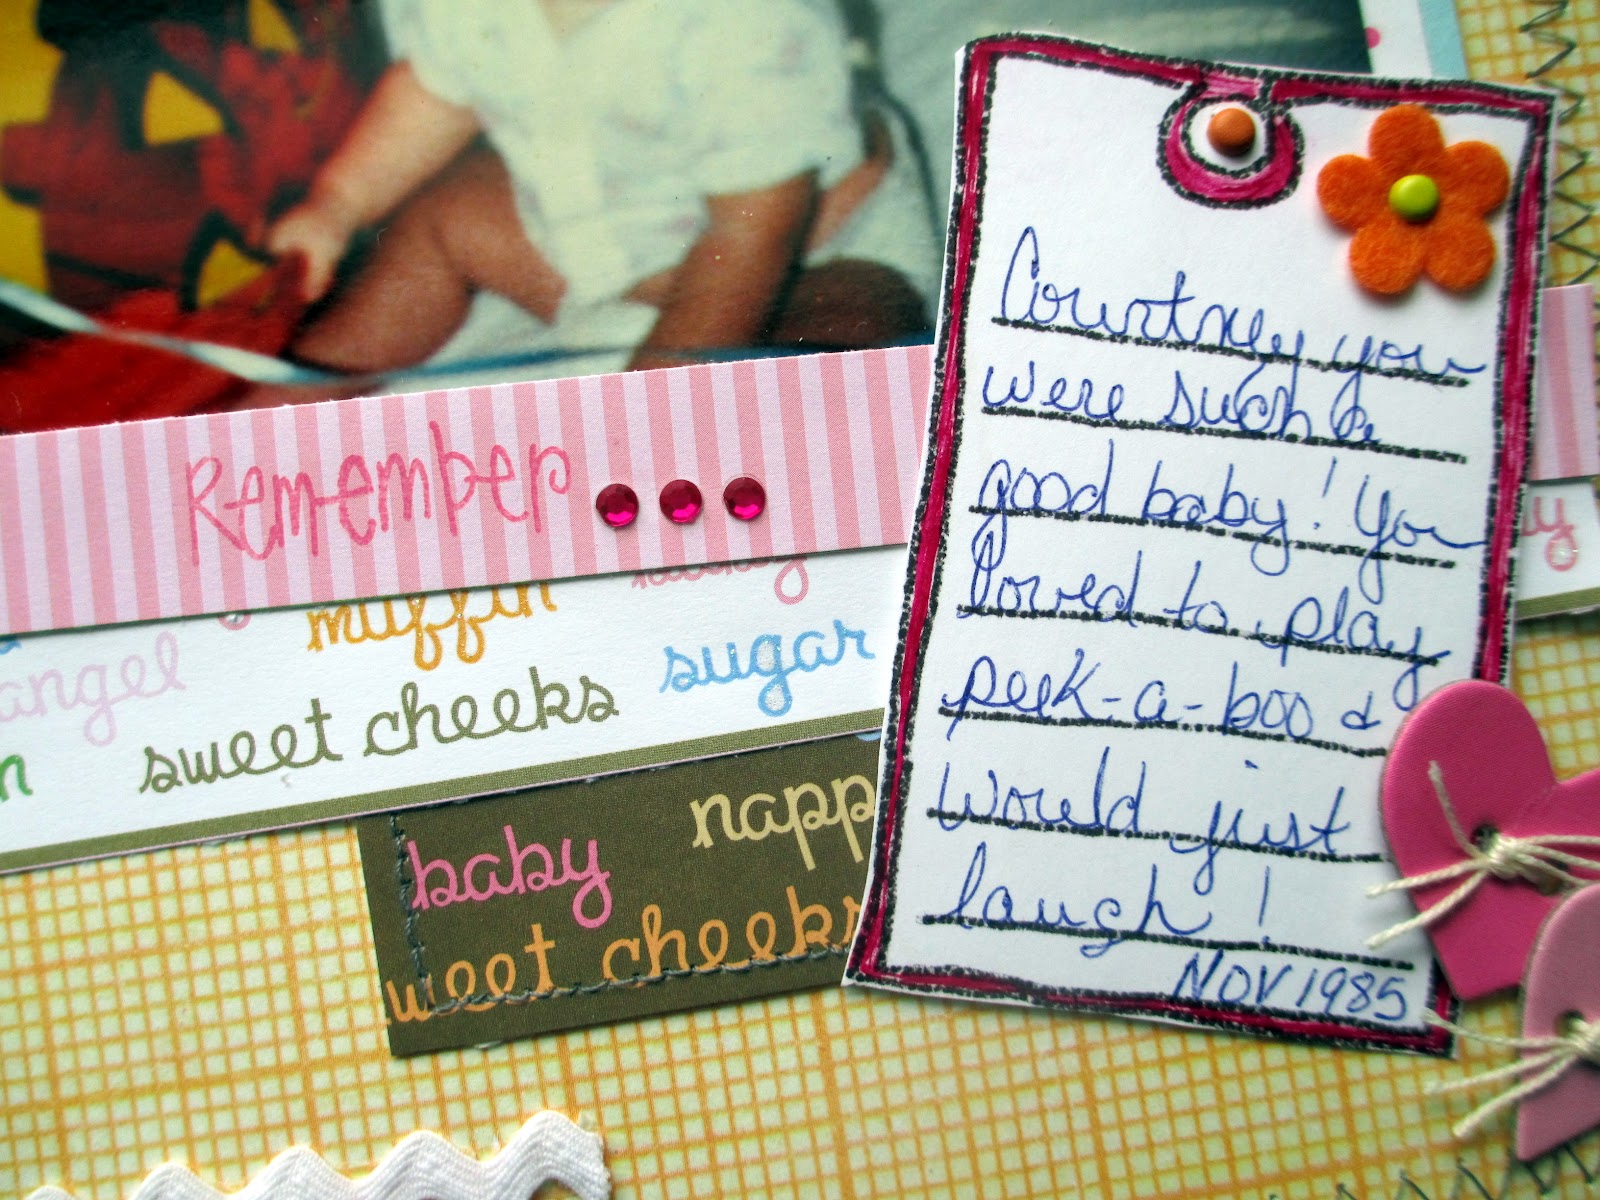 Remember
muffin
angel
sugar
sweet cheeks
baby
sweet cheeks
Courtney you
were such a
good baby! You
loved to play
peek-a-boo &
would just
laugh!
NOV 1985